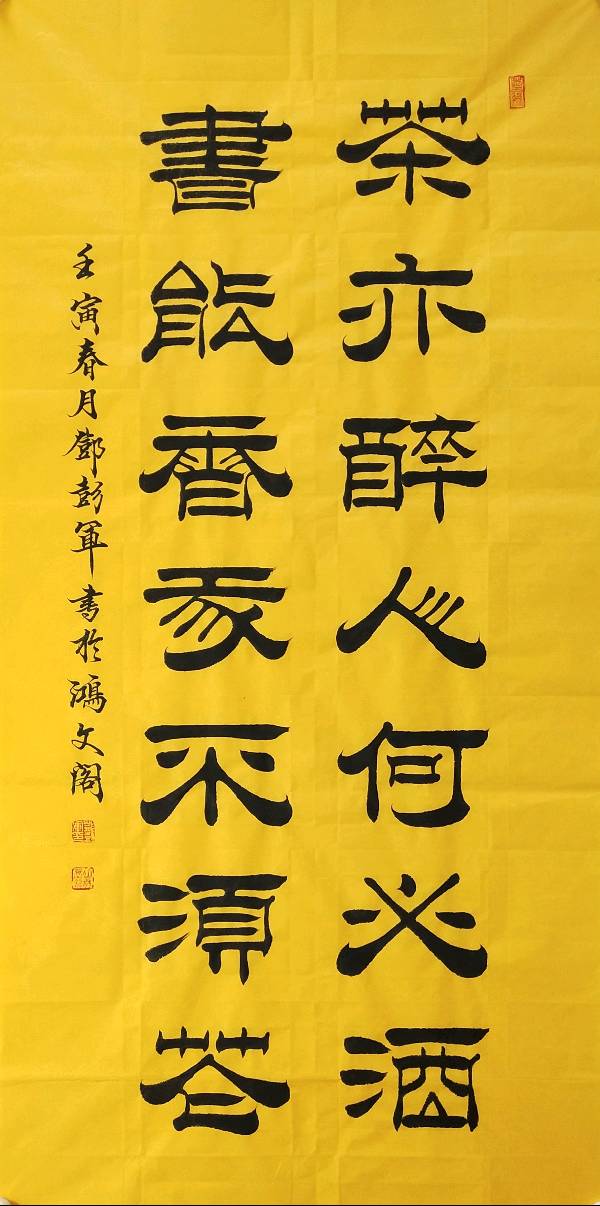 茶亦醉人何必酒
書能香我不須花
壬寅春月鄧彭軍書於鴻文閣